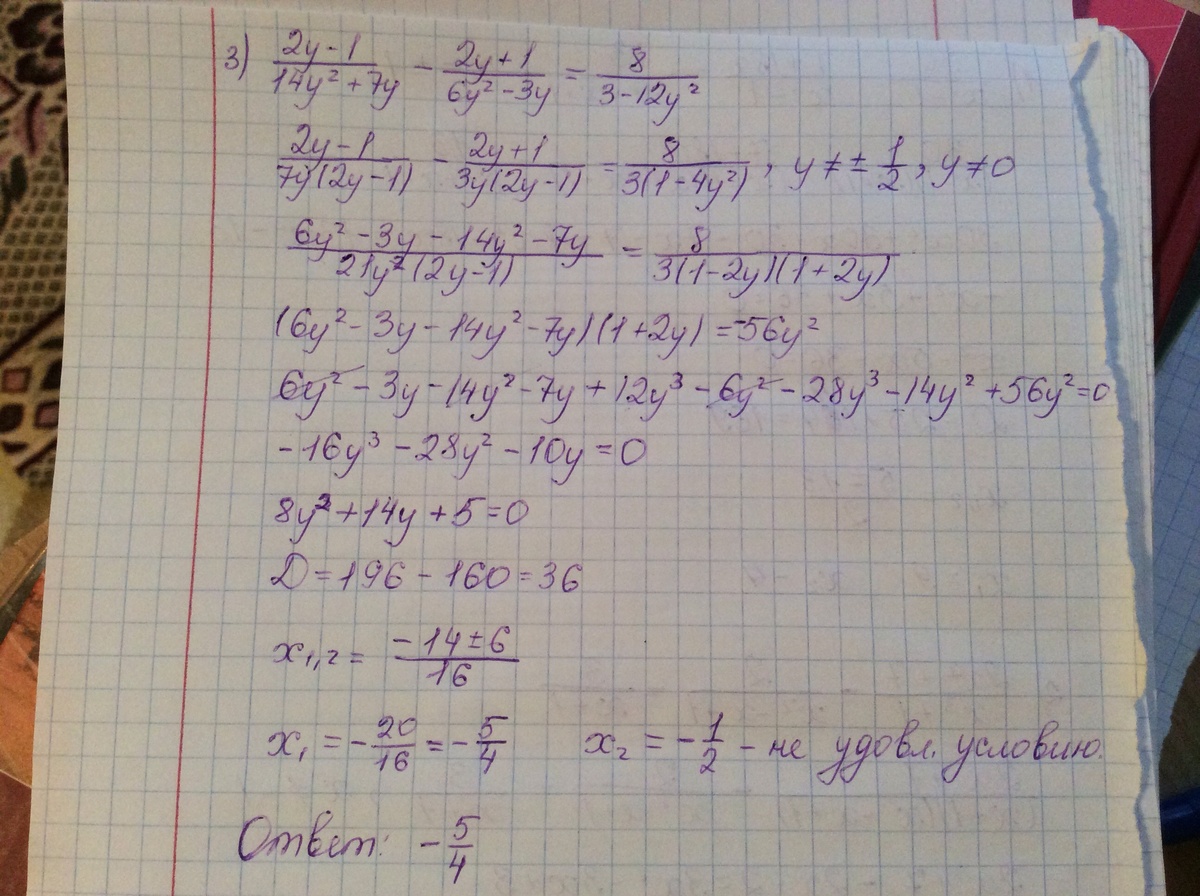 3) (2y-1)/(14y²+7y) - (2y+1)/(6y²-3y) = 8/(3-12y²)
(2y-1)/(7y(2y-1)) - (2y+1)/(3y(2y-1)) = 8/(3(1-4y²)), y≠±1/2, y≠0
(6y²-3y-14y²-7y)/(21y²(2y-1)) = 8/(3(1-2y)(1+2y))
(6y²-3y-14y²-7y)(1+2y)=-56y²
6y²-3y-14y²-7y+12y³-6y²-28y³-14y²+56y²=0
-16y³-28y²-10y=0
8y²+14y+5=0
D=196-160=36
x₁,₂= (-14±6)/16
x₁=-20/16=-5/4 x₂=-1/2 - не удовл. условию.
Ответ: -5/4